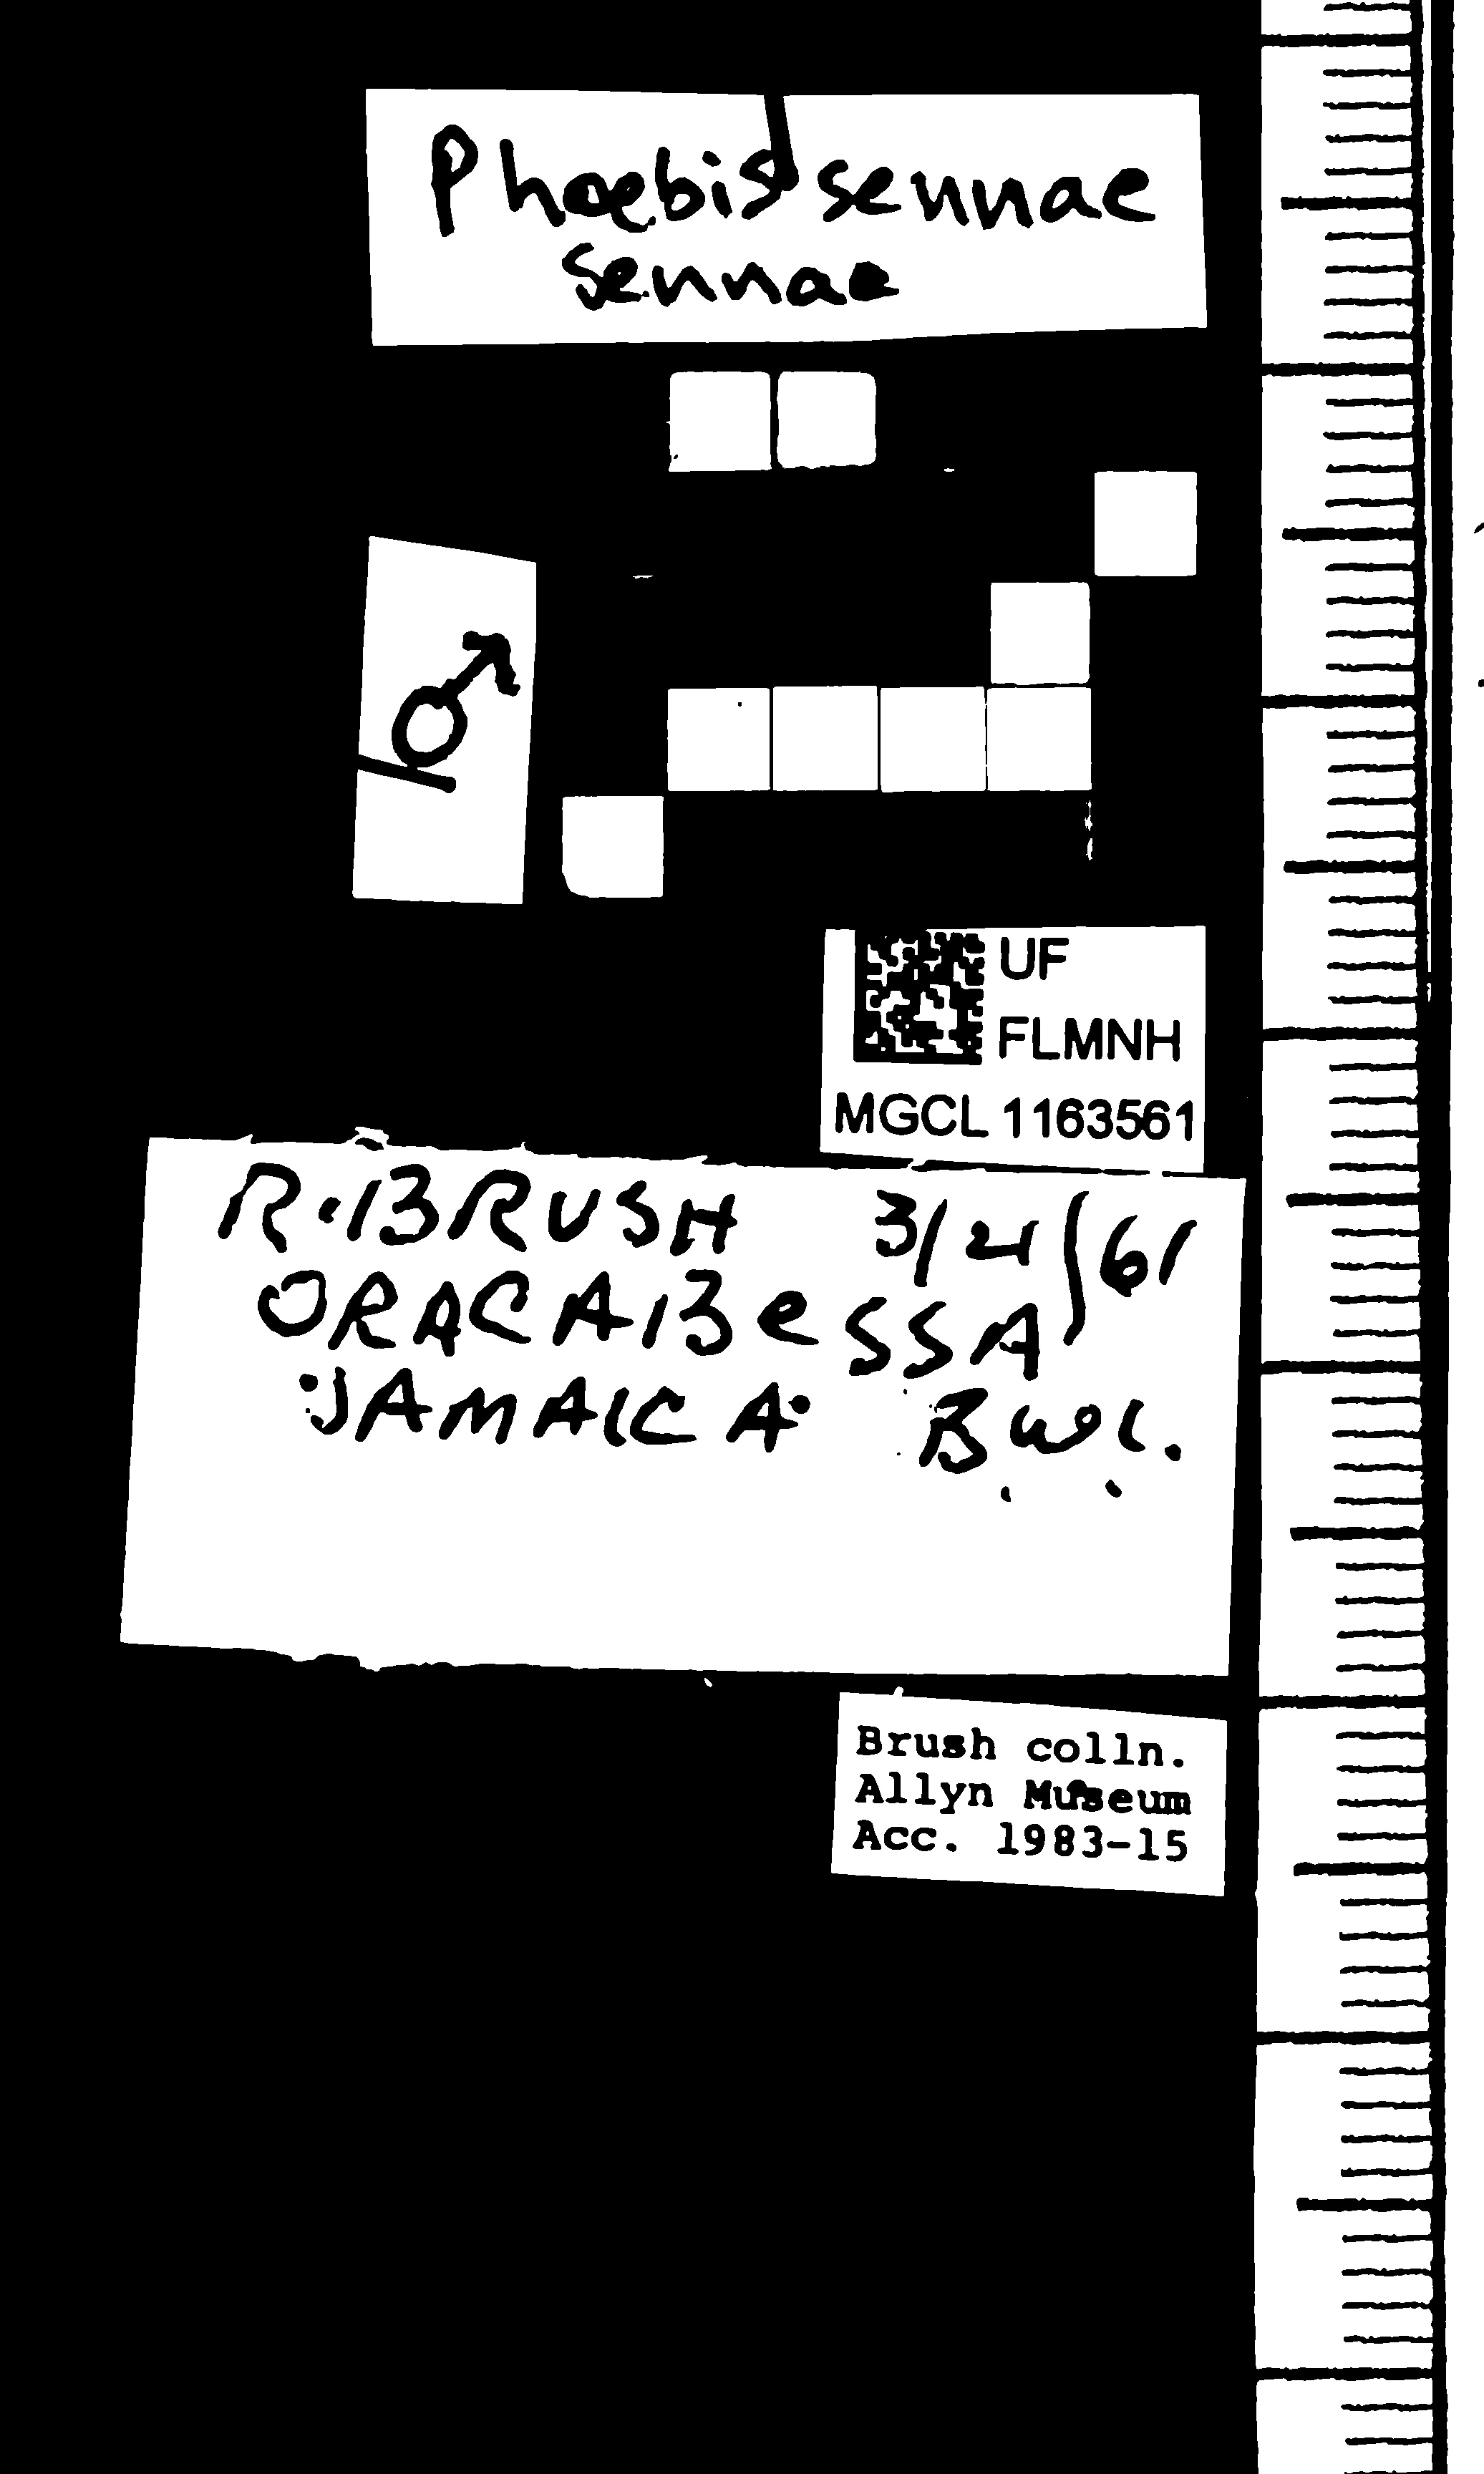 Phoebis sennae
sennae
♂
UF
FLMNH
MGCL 1163561
R. BRUSH 3/21/61
ORACABeSSA
JAMAICA
Brush colln.
Allyn Museum
Acc. 1983-15